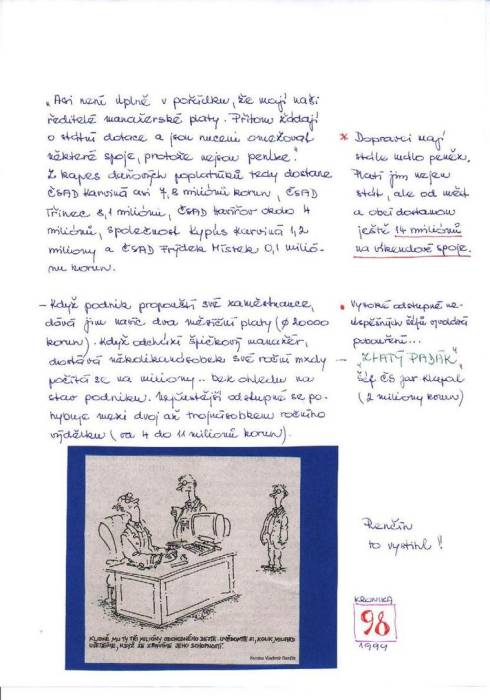 „Asi není úplně v pořádku, že mají naši
ředitelé manažerské platy. Přitom žádají
o státní dotace a jsou nuceni omezovat
některé spoje, protože nejsou peníze."
Z kapes daňových poplatníků tedy dostane
ČSAD Karviná asi 7,8 miliónů korun, ČSAD
Třinec 8,1 miliónů, ČSAD Havířov okolo 4
miliónů, společnost Kypus Karviná 1,2
miliony a ČSAD Frýdek Místek 0,1 milió-
nu korun.
* Dopravci mají
stále málo peněz.
Platí jim nejen
stát, ale od měst
a obcí dostanou
ještě 14 miliónů
na víkendové spoje.
- Když podnik propouští své zaměstnance,
dává jim navíc dva měsíční platy (Ø 20000
korun). Když odchází špičkový manažer,
dostává několikanásobek své roční mzdy
počítá se na miliony... bez ohledu na
stav podniku. Nejčastější odstupné se po-
hybuje mezi dvoj až trojnásobkem ročního
výdělku (na 4 do 11 milionů korun).
• Vysoké odstupné ne-
úspěšných šéfů vyvolává
pobouření...
— "ZLATÝ PADÁK"
šéf ČS Jar. Klapal
(2 miliony korun)
KLIDNĚ MU TY TŘI MILIÓNY ODCHODNÉHO DEJTE. UVĚDOMTE SI, KOLIK MILIARD
UŠETŘÍME, KDYŽ SE ZBAVÍME JEHO SCHOPNOSTÍ.
Kresba Vladimír Renčín
Renčín
to vystihl!
KRONIKA
98
1999